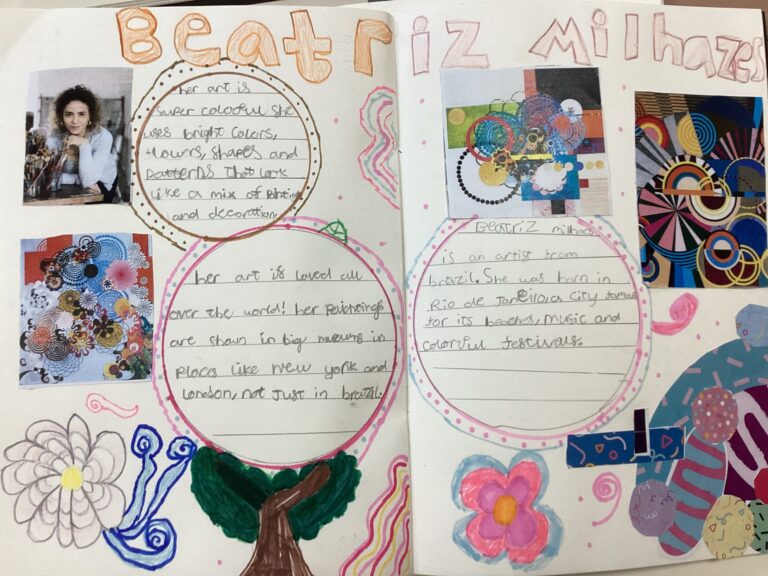 Beatriz Milhazes
her art is
super colorful she
uses bright colors,
flowers, shapes and
patterns that look
like a mix of
and decoration.
her art is loved all
over the world! her paintings
are shown in big museums in
places like new york and
london, not just in brazil.
Beatriz milhazes
is an artist from
brazil. She was born in
Rio de Janeiro, a City famous
for its beaches, music and
colorful festivals.